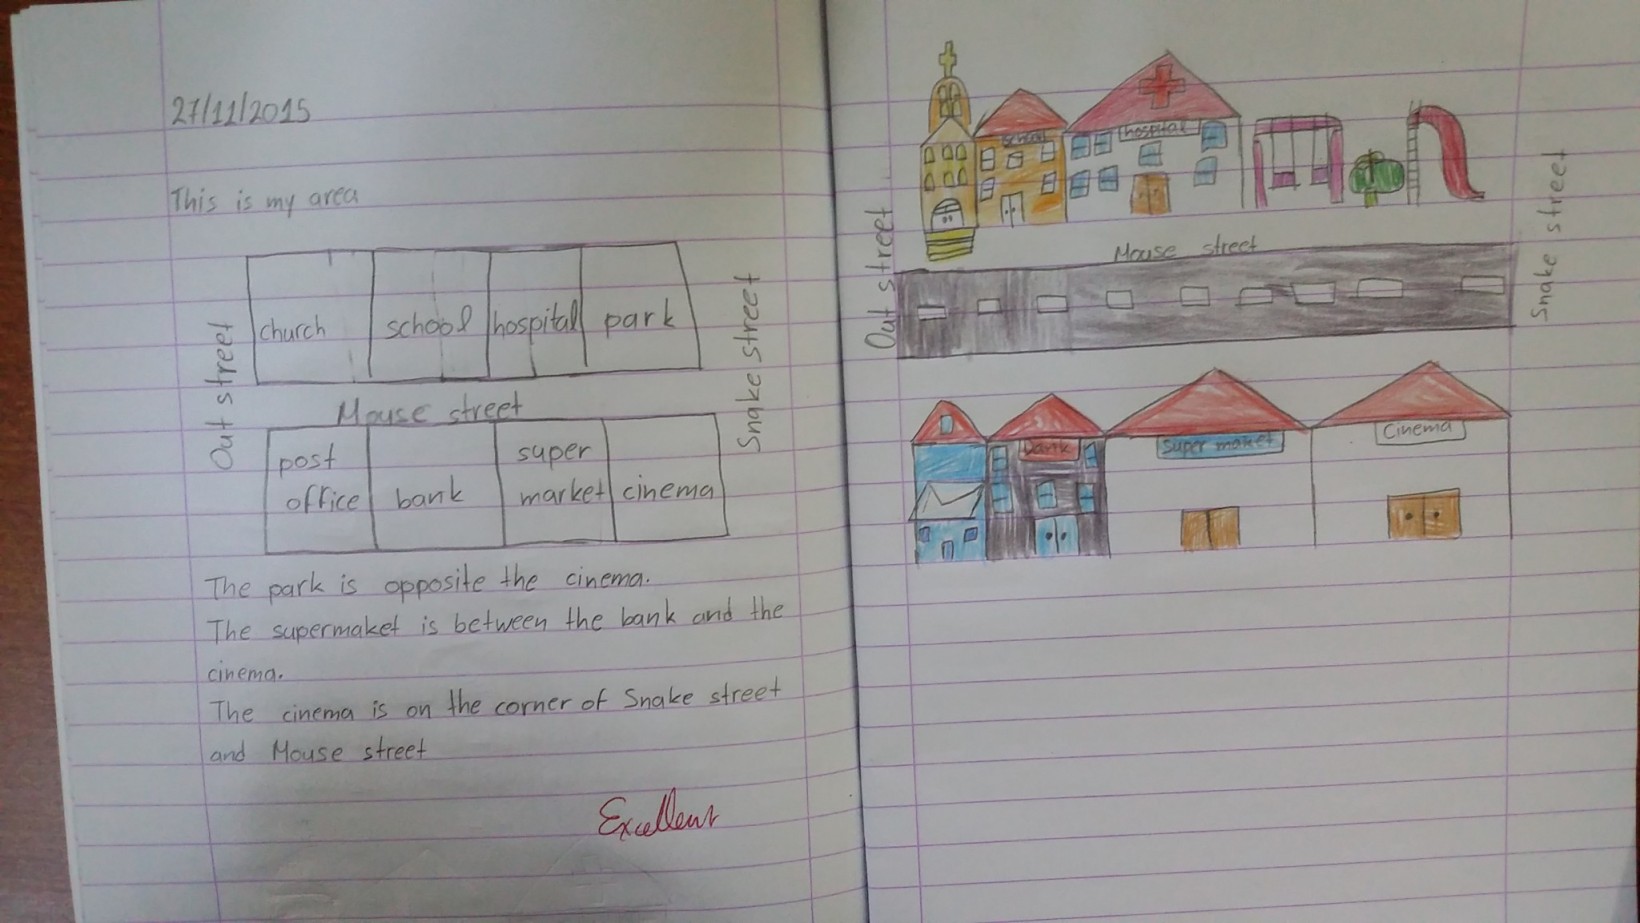 27/11/2015
This is my area
Out street
church school hospital park
Snake street
Mouse street
post
office
bank
super
market
cinema
The park is opposite the cinema.
The supermaket is between the bank and the
cinema.
The cinema is on the corner of Snake street
and Mouse street
Excellent
school
hospital
Out street
Mouse street
Snake street
bank
Super maket
Cinema